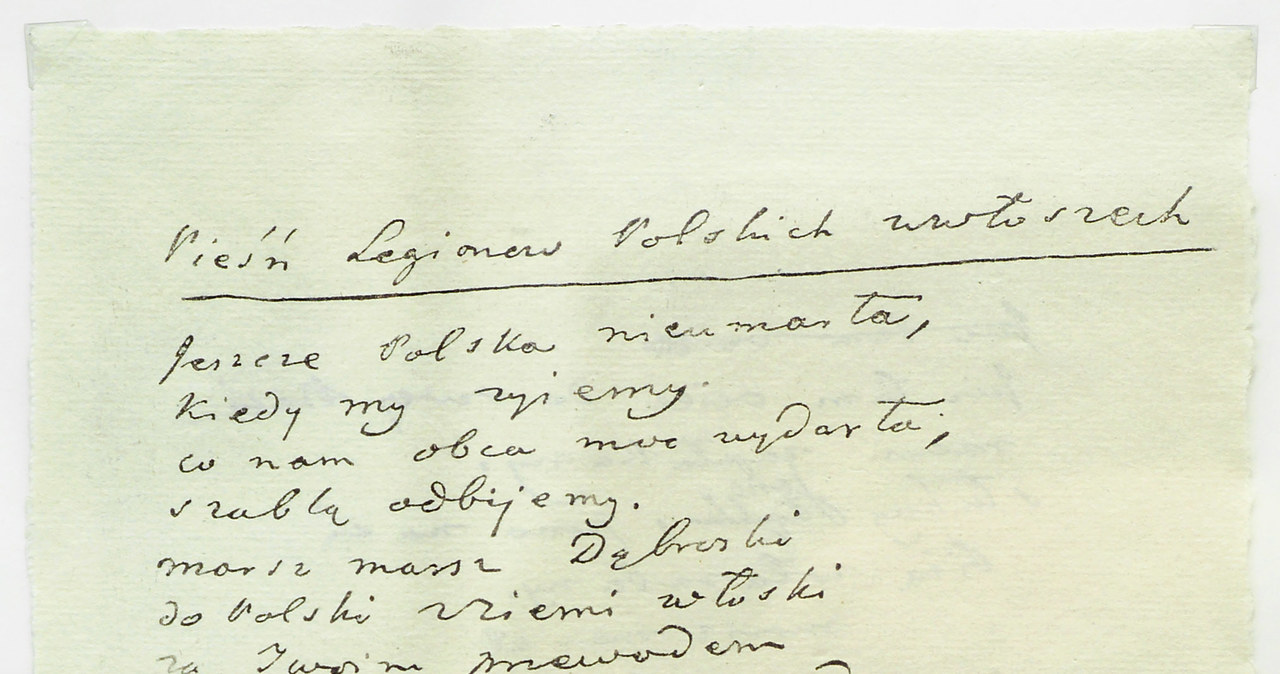 Pieśń Legionow Polskich wewłoszech
Jeszcze Polska nieumarła,
Kiedy my zyiemy.
co nam obca moc wydarła,
szablą odbijemy.
marsz marsz Dąbroski
do Polski zziemi włoski
za Twoim przewodem